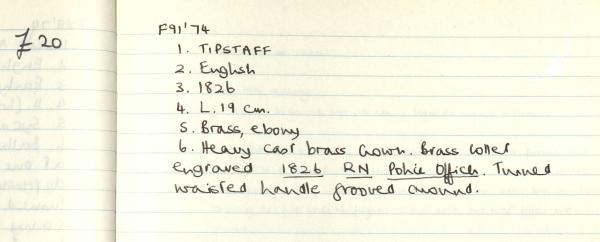 £20
F91'74
1. TIPSTAFF
2. English
3. 1826
4. L. 19 cm.
5. Brass, ebony
6. Heavy cast brass crown. Brass collar
engraved 1826 RN Police Officer. Turned
waisted handle grooved around.